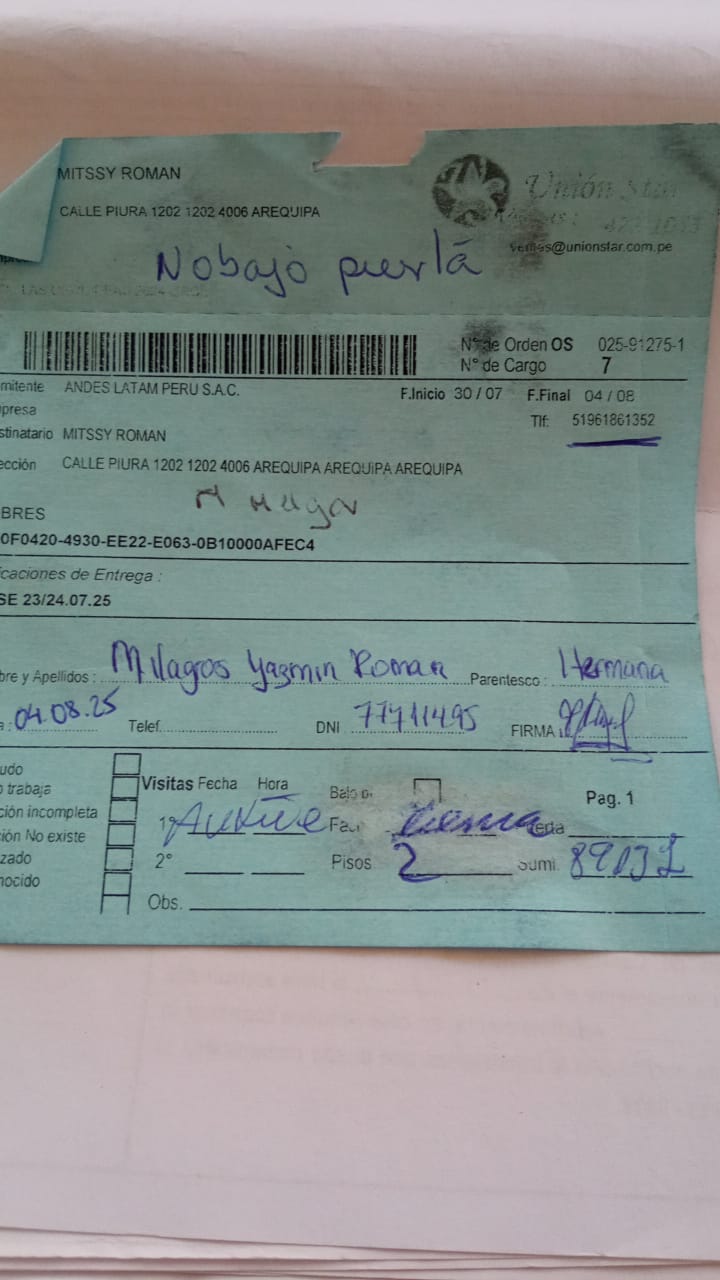 MITSSY ROMAN
CALLE PIURA 1202 1202 4006 AREQUIPA
Unión Star
ventas@unionstar.com.pe
No bajo puerta
N° de Orden OS 025-91275-1
N° de Cargo 7
mitente ANDES LATAM PERU S.A.C.
F.Inicio 30 / 07 F.Final 04 / 08
presa
Tlf: 51961861352
stinatario MITSSY ROMAN
ección CALLE PIURA 1202 1202 4006 AREQUIPA AREQUIPA AREQUIPA
BRES
0F0420-4930-EE22-E063-0B10000AFEC4
caciones de Entrega :
SE 23/24.07.25
bre y Apellidos : Milagros Yazmin Roman Parentesco : Hermana
a : 04.08.25 Telef. DNI 77711495 FIRMA
udo
o trabaja
ción incompleta
ción No existe
zado
nocido
Visitas Fecha Hora
Bajo p.
Pag. 1
1°
Fac.
2°
Pisos 2
Sumi.
Obs.